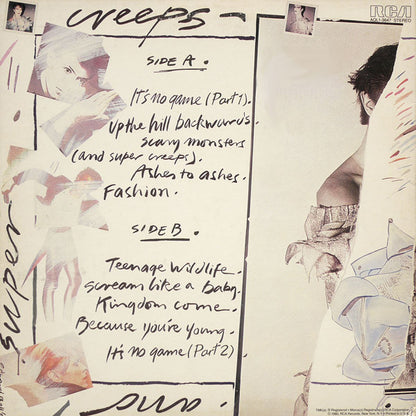 creeps -
RCA
AQL1-3647 STEREO
SIDE A.
It's no game (Part 1).
Up the hill backwards.
scary monsters
(and super creeps).
Ashes to ashes.
Fashion.
SIDE B.
Teenage Wildlife.
Scream like a Baby.
Kingdom come.
Because you're young.
It's no game (Part 2)
super